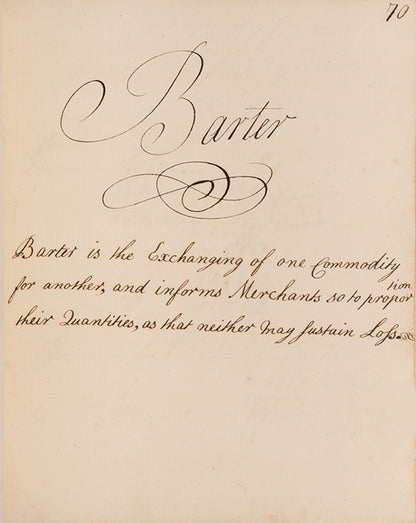 70
Barter
Barter is the Exchanging of one Commodity
for another, and informs Merchants so to proportion
their Quantities, as that neither may sustain Loss.